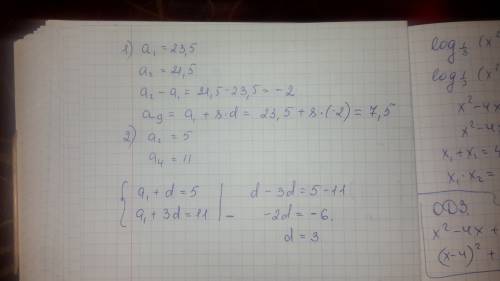 1) a₁ = 23,5
a₂ = 21,5
a₂ - a₁ = 21,5 - 23,5 = -2
a₉ = a₁ + 8·d = 23,5 + 8·(-2) = 7,5
2) a₂ = 5
a₄ = 11
{ a₁ + d = 5 | d - 3d = 5 - 11
a₁ + 3d = 11 | - -2d = -6.
d = 3
log 1/3 (x²
log 1/3 (x²
x² - 4x
x² - 4
x₁ + x₂ = 4
x₁ · x₂ =
ОДЗ.
x² - 4x +
(x-4)² +